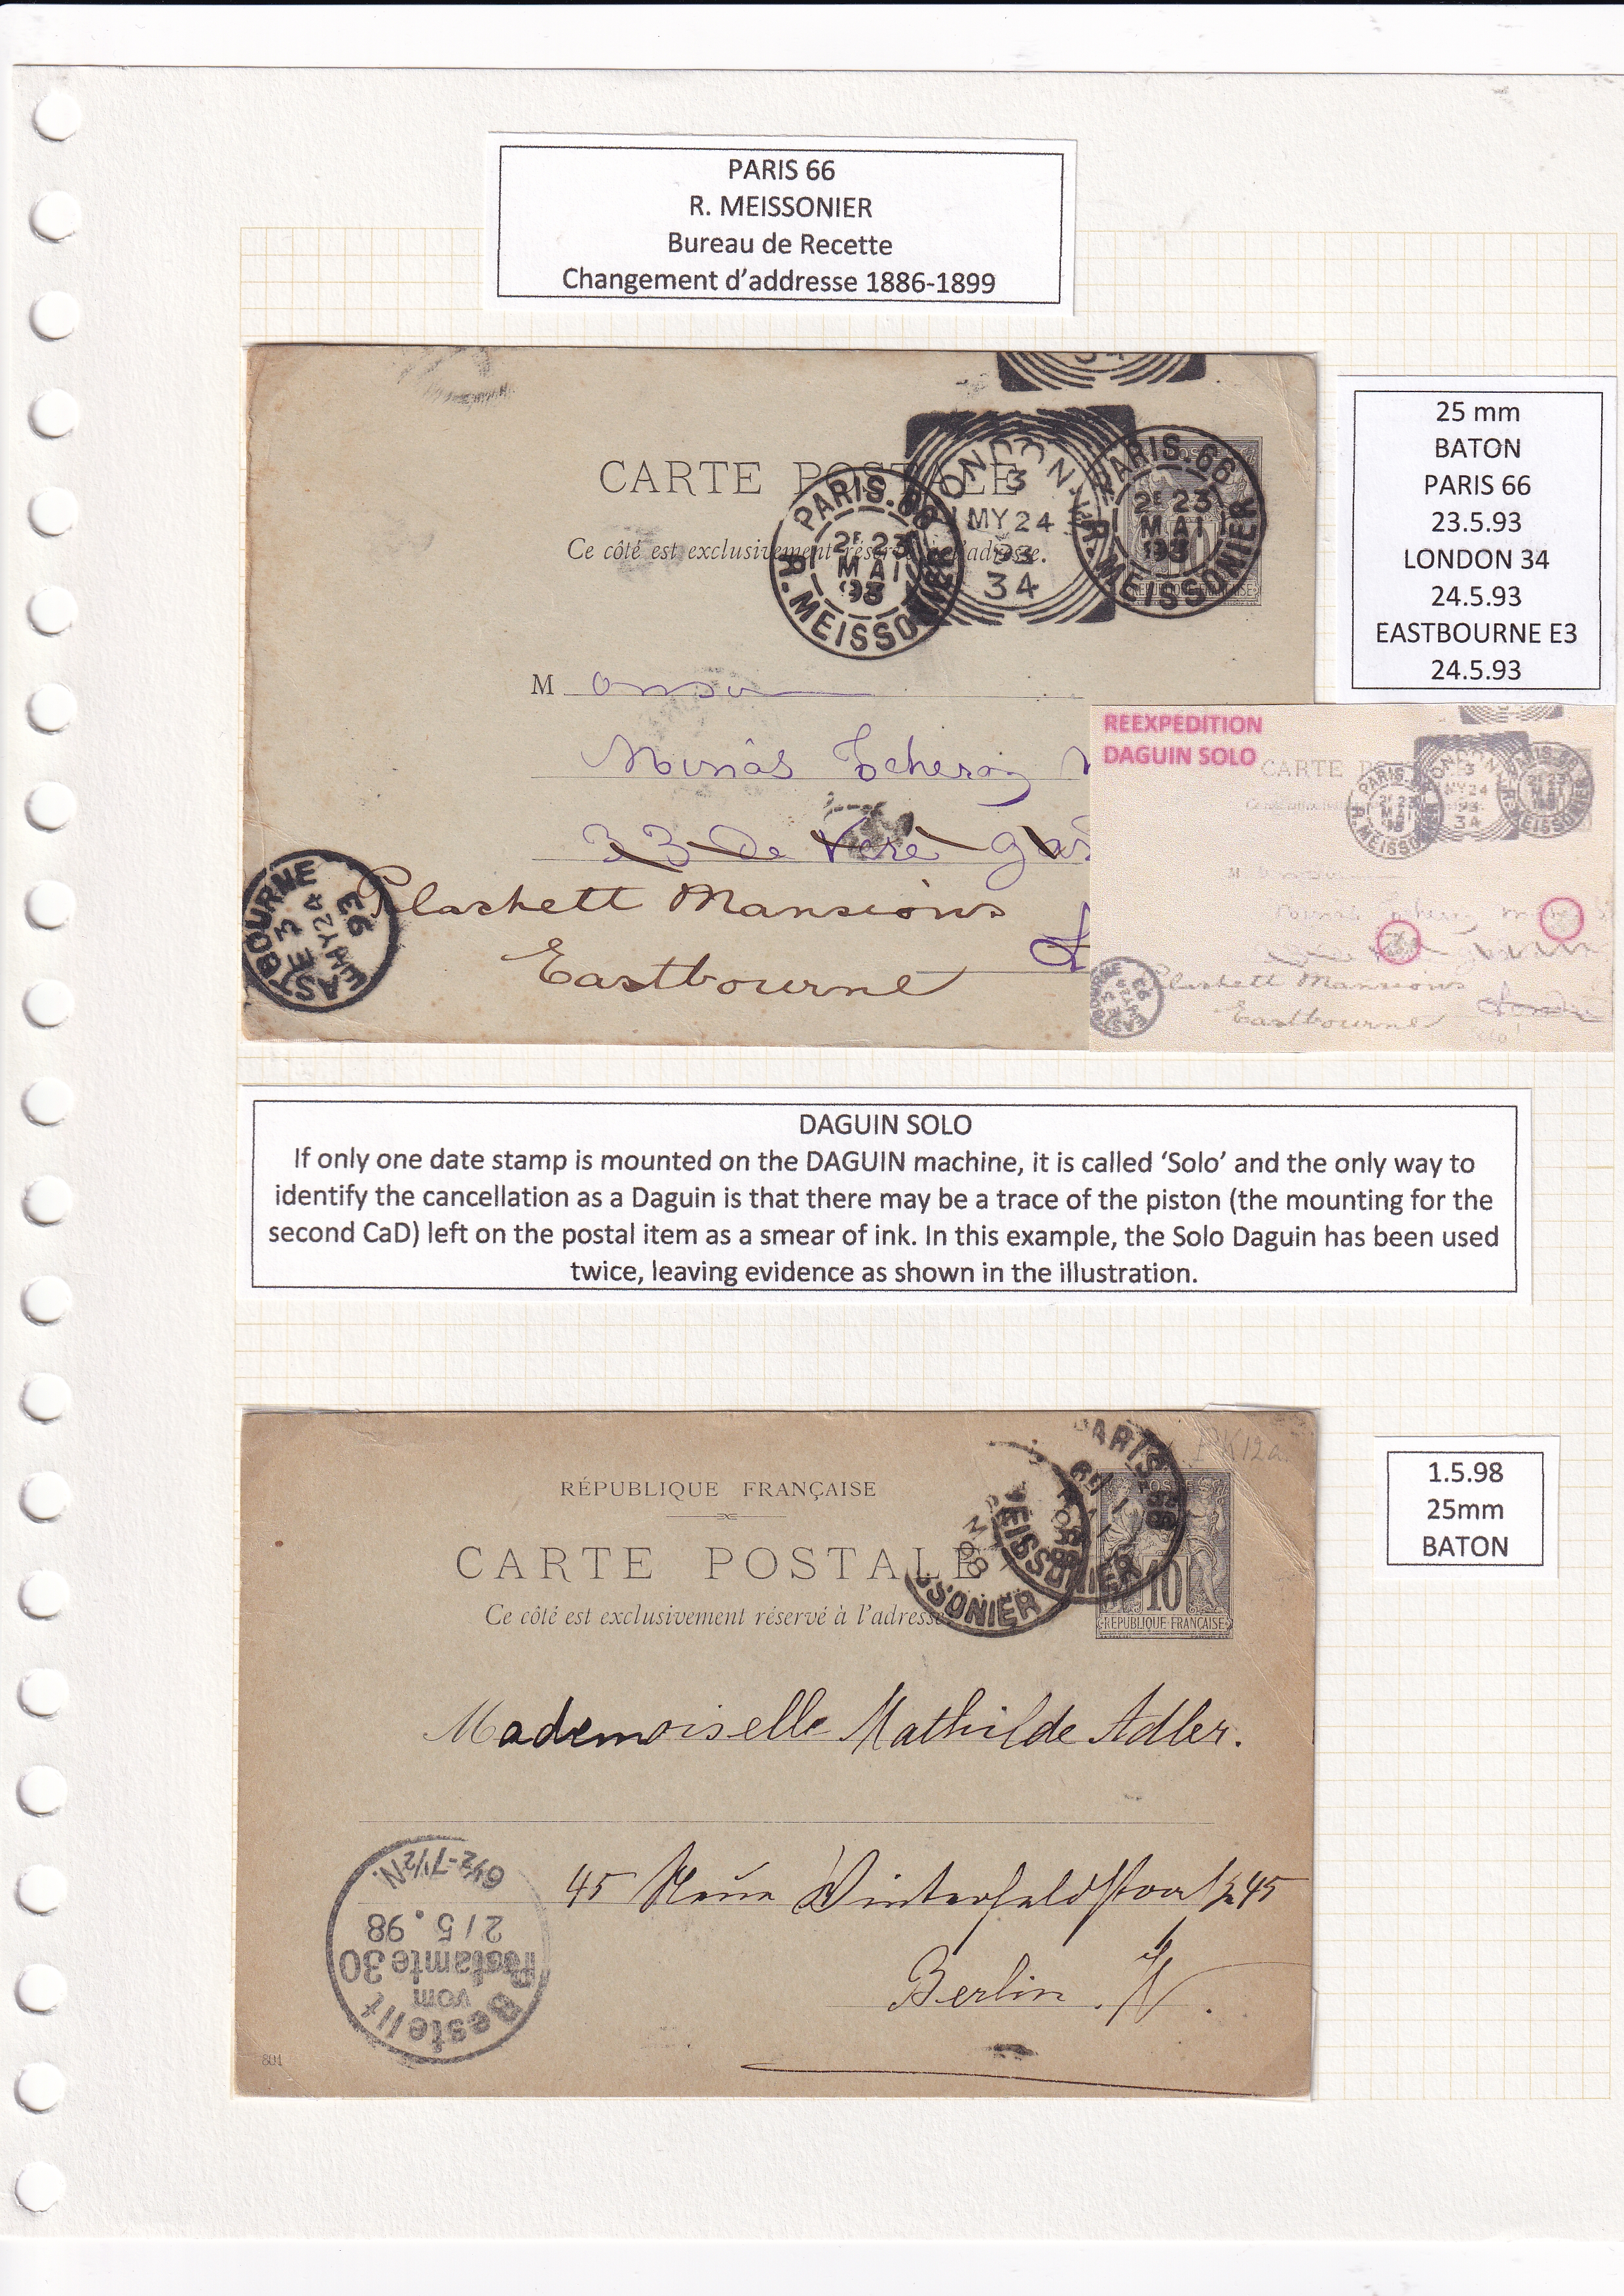 PARIS 66
R. MEISSONIER
Bureau de Recette
Changement d'addresse 1886-1899
25 mm
BATON
PARIS 66
23.5.93
LONDON 34
24.5.93
EASTBOURNE E3
24.5.93
CARTE POSTALE
Ce côté est exclusivement réservé à l'adresse.
PARIS. 66
2E 23
MAI
93
R. MEISSONIER
LONDON
3
MY 24
93
34
PARIS. 66
2E 23
MAI
93
R. MEISSONIER
RÉPUBLIQUE FRANÇAISE
M
Minas Tcheraz
33 De Vere
Plashett Mansions
Eastbourne
EASTBOURNE
E3
MY 24
93
REEXPEDITION
DAGUIN SOLO
CARTE
PARIS.
2E 23
MAI
93
R. MEISSO
LONDON
3
MY 24
93
34
PARIS. 66
2E 23
MAI
93
R. MEISSONIER
M
Plashett Mansions
Eastbourne
Londres
EASTBOURNE
DAGUIN SOLO
If only one date stamp is mounted on the DAGUIN machine, it is called 'Solo' and the only way to
identify the cancellation as a Daguin is that there may be a trace of the piston (the mounting for the
second CaD) left on the postal item as a smear of ink. In this example, the Solo Daguin has been used
twice, leaving evidence as shown in the illustration.
1.5.98
25mm
BATON
PK12a
RÉPUBLIQUE FRANÇAISE
CARTE POSTALE
Ce côté est exclusivement réservé à l'adresse
PARIS 66
MEISSONIER
SSONIER
POSTE
10
RÉPUBLIQUE FRANÇAISE
Mademoiselle Mathilde Adler.
45 Neue Winterfeldstrasse 45
Berlin. W.
Bestellt
vom
Postamte 30
2/5.98
6½-7½N.
801